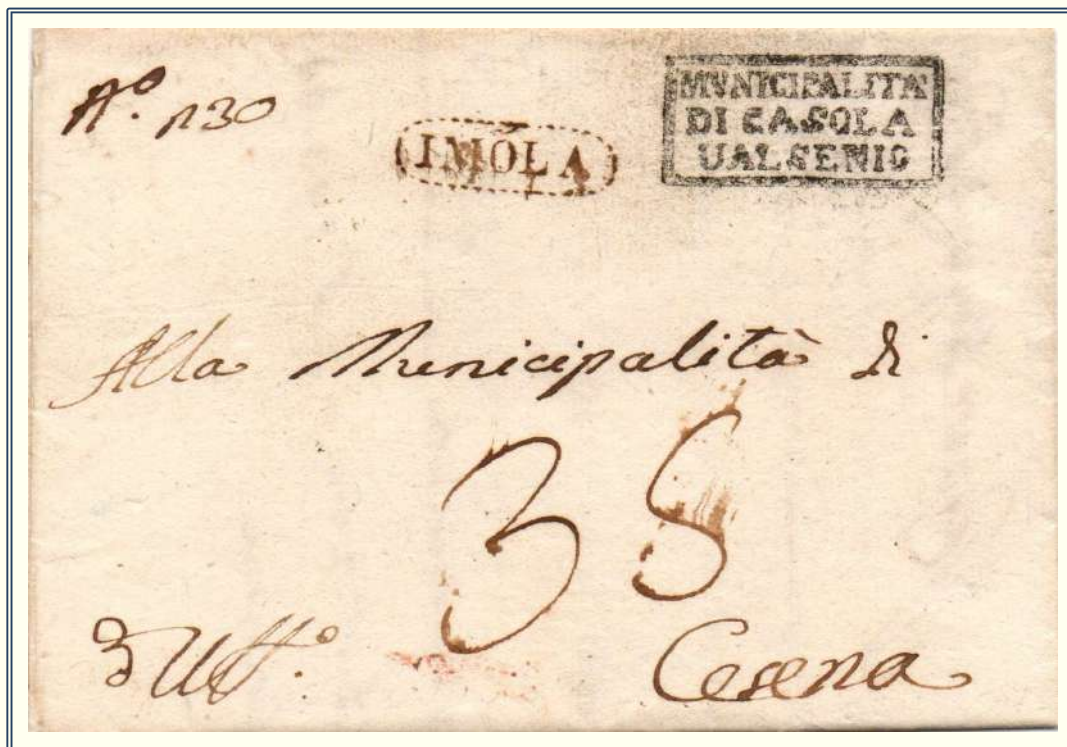 N.º 130
IMOLA
MUNICIPALITA'
DI CASOLA
UALSENIO
Alla Municipalità di
35
Cesena